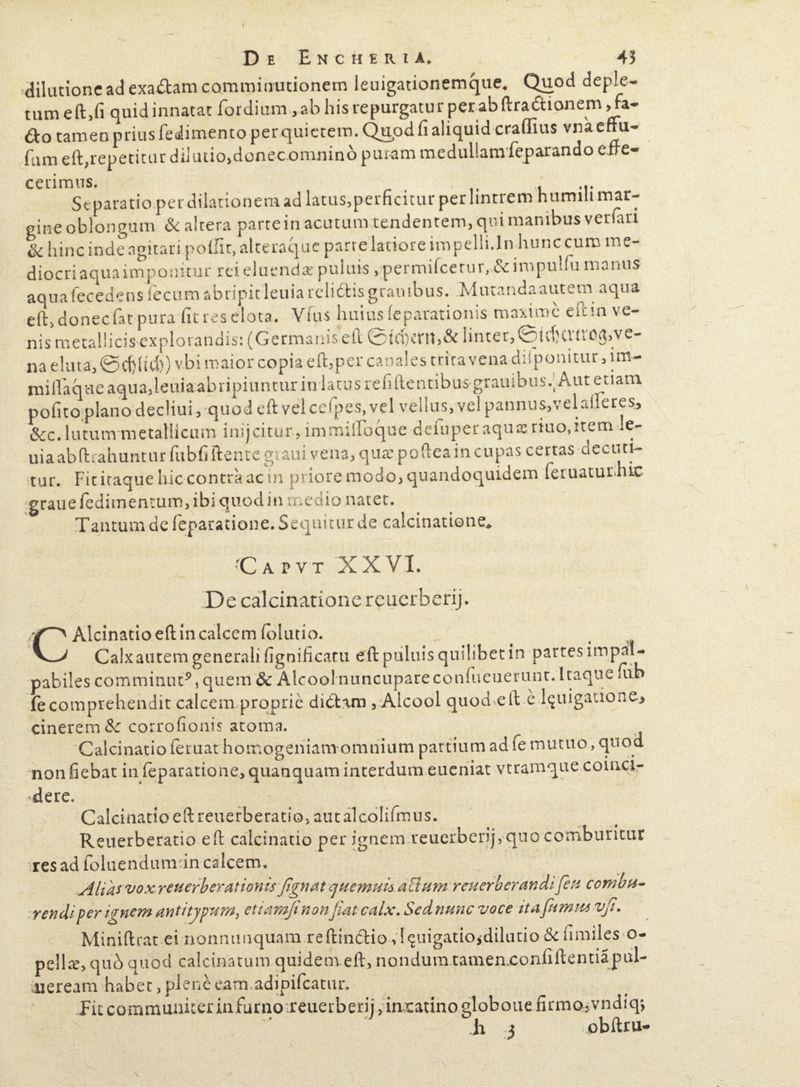 DE ENCHERIA. 43
dilutione ad exactam comminutionem leuigationemque. Quod deple-
tum est, si quid innatat sordium, ab his repurgatur per abstractionem, fa-
cto tamen prius sedimento per quietem. Quod si aliquid crassius vna effu-
sum est, repetitur dilutio, donec omninò puram medullam separando effe-
cerimus.
Separatio per dilationem ad latus, perficitur per lintrem humili mar-
gine oblongum & altera parte in acutum tendentem, qui manibus versari
& hinc inde agitari possit, alteraque parte latiore impelli. In hunc cum me-
diocri aqua imponitur rei eluendæ puluis, permiscetur, & impulsu manus
aqua secedens secum abripit leuia relictis grauibus. Mutanda autem aqua
est, donec sat pura sit res elota. Vsus huius separationis maximè est in ve-
nis metallicis explorandis: (Germanis est Sichern, & linter, Sichertrog, ve-
na eluta, Schlich) vbi maior copia est, per canales trita vena disponitur, im-
missaque aqua, leuia abripiuntur in latus resistentibus grauibus. Aut etiam
posito plano decliui, quod est vel cespes, vel vellus, vel pannus, vel asseres,
&c. lutum metallicum inijcitur, immissoque desuper aquæ riuo, item le-
uia abstrahuntur subsistente graui vena, quæ postea in cupas certas decuti-
tur. Fit itaque hic contrà ac in priore modo, quandoquidem seruatur hic
graue sedimentum, ibi quod in medio natet.
Tantum de separatione. Sequitur de calcinatione.
CAPVT XXVI.
De calcinatione reuerberij.
CAlcinatio est in calcem solutio.
Calx autem generali significatu est puluis quilibet in partes impal-
pabiles comminutꝰ, quem & Alcool nuncupare consueuerunt. Itaque sub
se comprehendit calcem propriè dictam, Alcool quod est è lęuigatione,
cinerem & corrosionis atoma.
Calcinatio seruat homogeniam omnium partium ad se mutuo, quod
non fiebat in separatione, quanquam interdum eueniat vtramque coinci-
dere.
Calcinatio est reuerberatio, aut alcolismus.
Reuerberatio est calcinatio per ignem reuerberij, quo comburitur
res ad soluendum in calcem.
Aliàs vox reuerberationis signat quemuis actum reuerberandi seu combu-
rendi per ignem antitypum, etiamsi non fiat calx. Sed nunc voce ita sumus vsi.
Ministrat ei nonnunquam restinctio, lęuigatio, dilutio & similes o-
pellæ, quò quod calcinatum quidem est, nondum tamen consistentiã pul-
uеream habet, plenè eam adipiscatur.
Fit communiter in furno reuerberij, in catino globoue firmo, vndiq;
h 3 obstru-